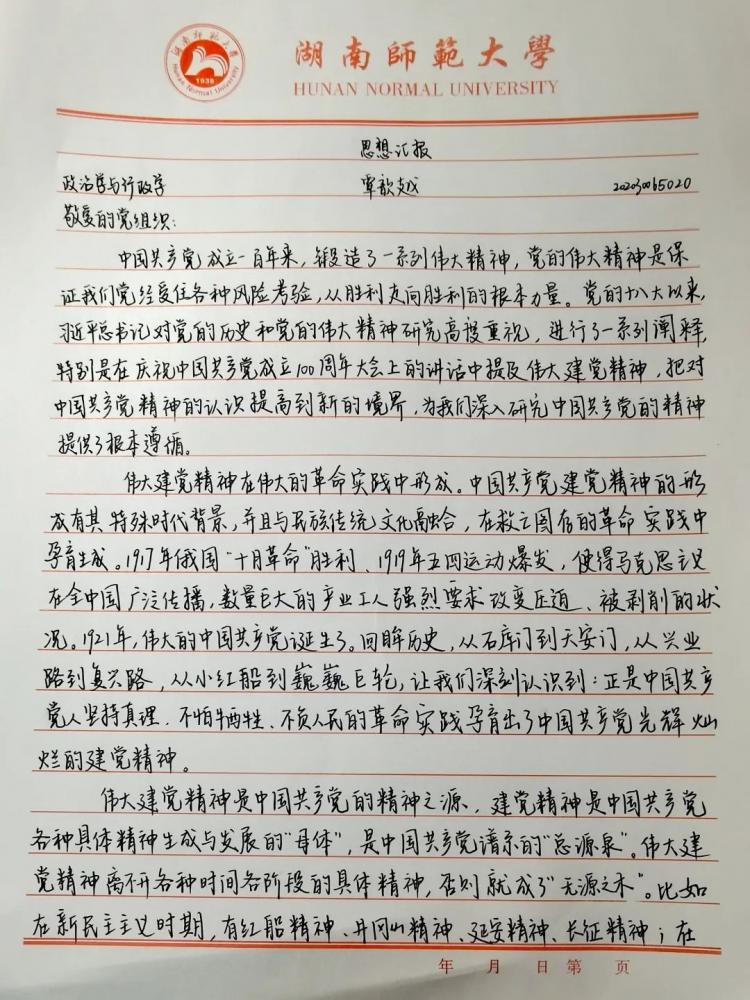 湖南师范大学
Hunan Normal University
1938
湖南師範大學
HUNAN NORMAL UNIVERSITY
思想汇报
政治学与行政学 覃歆越 202030065020
敬爱的党组织:
中国共产党成立一百年来,锻造了一系列伟大精神,党的伟大精神是保
证我们党经受住各种风险考验,从胜利走向胜利的根本力量。党的十八大以来,
习近平总书记对党的历史和党的伟大精神研究高度重视,进行了一系列阐释,
特别是在庆祝中国共产党成立100周年大会上的讲话中提及伟大建党精神,把对
中国共产党精神的认识提高到新的境界,为我们深入研究中国共产党的精神
提供了根本遵循。
伟大建党精神在伟大的革命实践中形成。中国共产党建党精神的形
成有其特殊时代背景,并且与民族传统文化融合,在救亡图存的革命实践中
孕育生成。1917年俄国“十月革命”胜利、1919年五四运动爆发,使得马克思主义
在全中国广泛传播,数量巨大的产业工人强烈要求改变压迫、被剥削的状
况。1921年,伟大的中国共产党诞生了。回眸历史,从石库门到天安门,从兴业
路到复兴路,从小红船到巍巍巨轮,让我们深刻认识到:正是中国共产
党人坚持真理、不怕牺牲、不负人民的革命实践孕育出了中国共产党光辉灿
烂的建党精神。
伟大建党精神是中国共产党的精神之源,建党精神是中国共产党
各种具体精神生成与发展的“母体”,是中国共产党谱系的“总源泉”。伟大建
党精神离不开各种时间各阶段的具体精神,否则就成了“无源之木”。比如
在新民主主义时期,有红船精神、井冈山精神、延安精神、长征精神;在
年 月 日 第 页